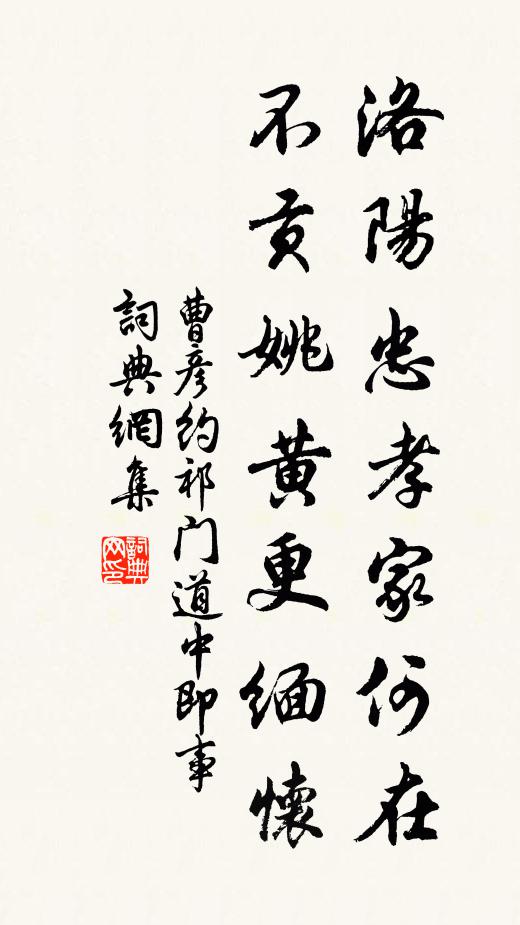 洛陽忠孝家何在
不貢姚黃更緬懷
曹彦約祁门道中即事
詞典網集
詞典
网印